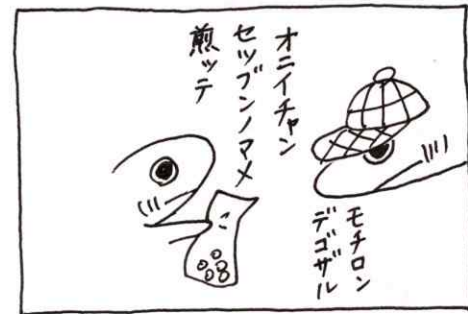 オニイチャン
セツブンノマメ
煎ッテ
モチロン
デゴザル